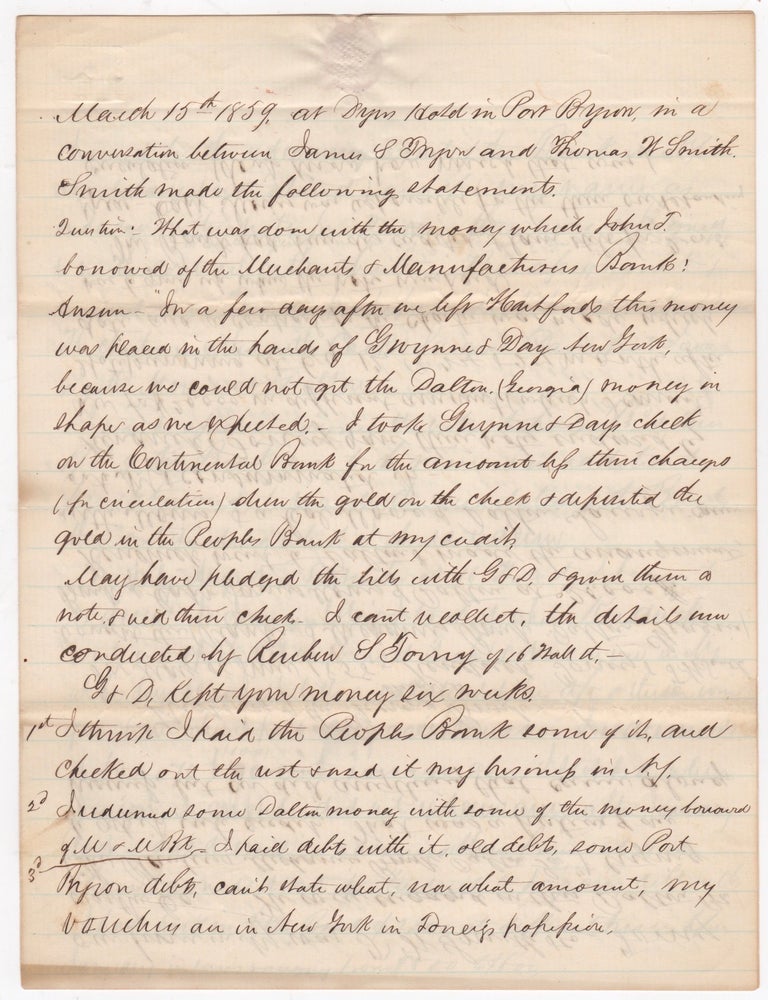 March 15th 1859, at Dyers Hotel in Port Byron, in a
conversation between James S Tryon and Thomas W Smith.
Smith made the following statements.
Question - What was done with the money which John T.
borrowed of the Merchants & Manufacturers Bank?
Answer - "In a few day after we left Hartford this money
was placed in the hands of Gwynne & Day New York,
because we could not get the Dalton (Georgia) money in
shape as we expected. - I took Gwynne & Days check
on the Continental Bank for the amount less their charges
(for circulation) drew the gold on the check & deposited the
gold in the Peoples Bank at my credit,
May have pledged the bills with G & D. & given them a
note & used their check - I cant recollect, the details were
conducted by Reuben S Torrey of 16 Wall St. -
G & D, Kept your money six weeks.
1st I think I paid the Peoples Bank some of it, and
checked out the rest & used it my business in N.Y.
2d I redeemed some Dalton money with some of the money borrowed
of M & M Bk - I paid debts with it, old debts, some Port
3d Byron debts, cant state what, nor what amount, my
vouchers are in New York in Torreys possession,